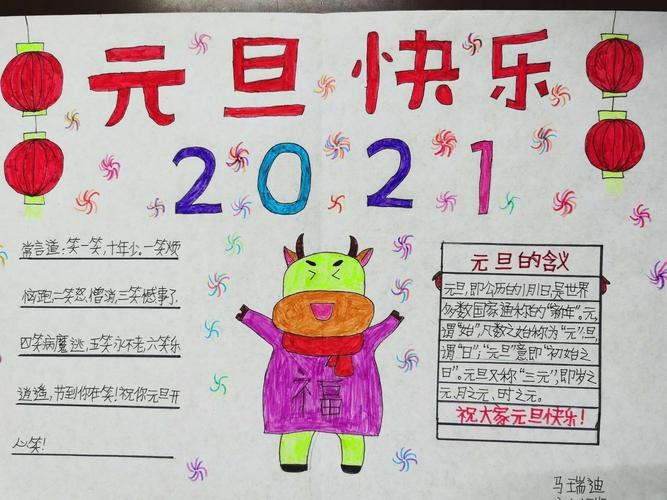 元旦快乐
2021
常言道:笑一笑,十年少。一笑烦
恼跑二笑怒憎消,三笑憾事了,
四笑病魔逃,五笑永不老,六笑乐
逍遥,节到你在笑!祝你元旦开
心笑!
福
元旦的含义
元旦,即公历的1月1日,是世界
多数国家通称的“新年”。元,
谓“始”,凡数之始称为“元”;旦,
谓“日”;“元旦”意即“初始之
日”。元旦又称“三元”,即岁之
元、月之元、时之元。
祝大家元旦快乐!
马瑞迪